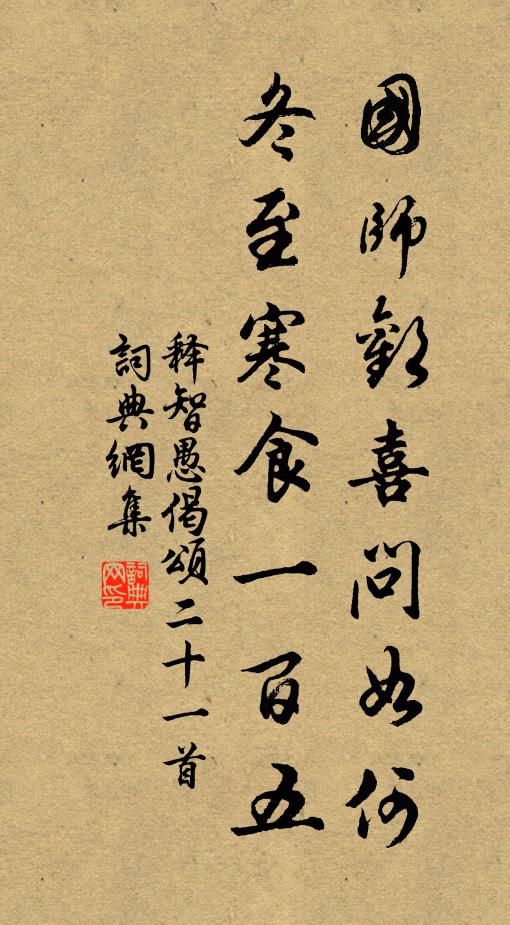 國師歡喜問如何
冬至寒食一百五
释智愚偈頌二十一首
詞典網集
詞典网印